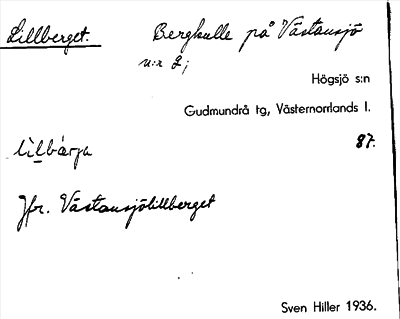 Lillberget. Bergkulle på Västansjö
n:r 2;
Högsjö s:n
Gudmundrå tg, Västernorrlands l.
87.
lìlbárja
Jfr. Västansjölillberget
Sven Hiller 1936.